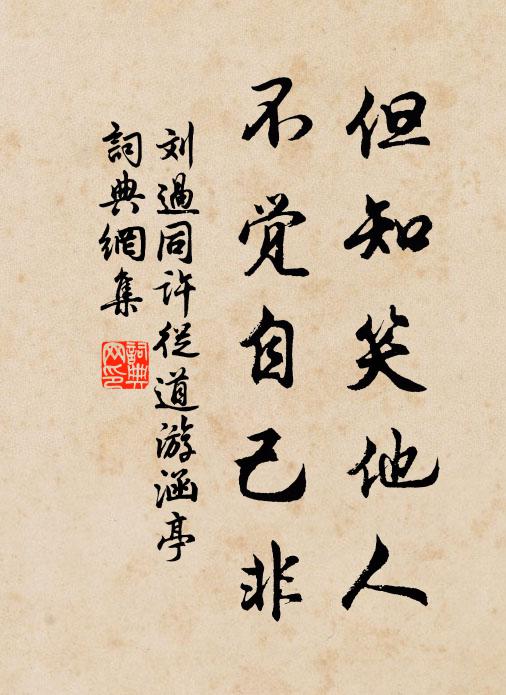 但知笑他人
不觉自己非
刘過同许從道游涵亭
詞典網集
詞典網印